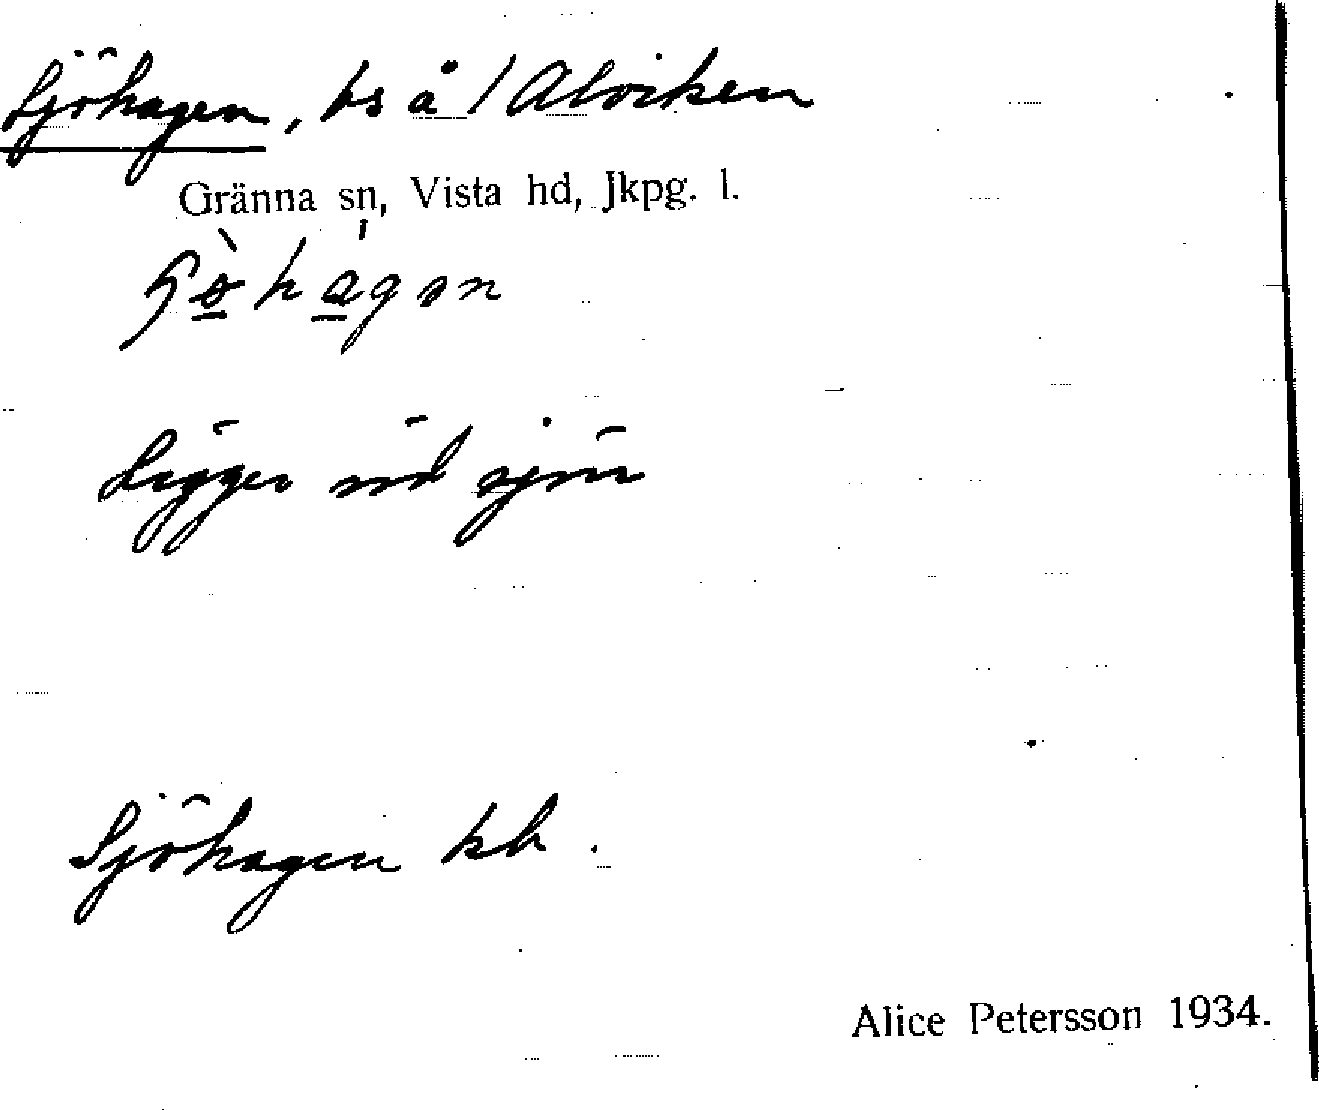 Sjöhagen, bs å 1 Alviken
Gränna sn, Vista hd, Jkpg. l.
Ligger vid sjön
Sjöhagen kb.
Alice Petersson 1934.